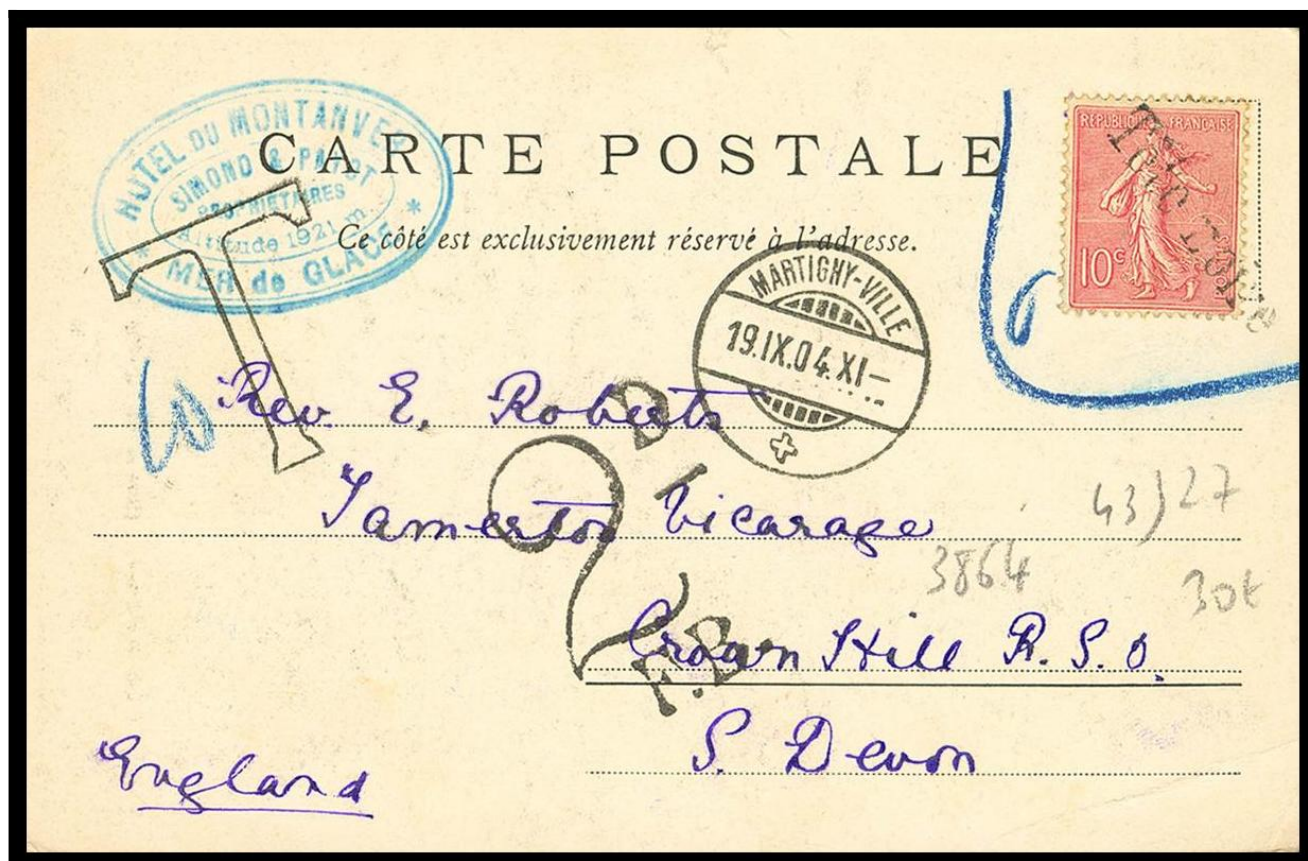 HOTEL DU MONTANVERT
SIMOND & PAYOT
PROPRIETAIRES
Altitude 1921 m.
* MER de GLACE *
CARTE POSTALE
Ce côté est exclusivement réservé à l'adresse.
REPUBLIQUE FRANÇAISE
10c
T
MARTIGNY-VILLE
19.IX.04.XI-
10
Rev. E. Roberts
Tamerton Vicarage
2D
F.B.
43)27
3864
30t
Crown Hill R.S.O.
S. Devon
England